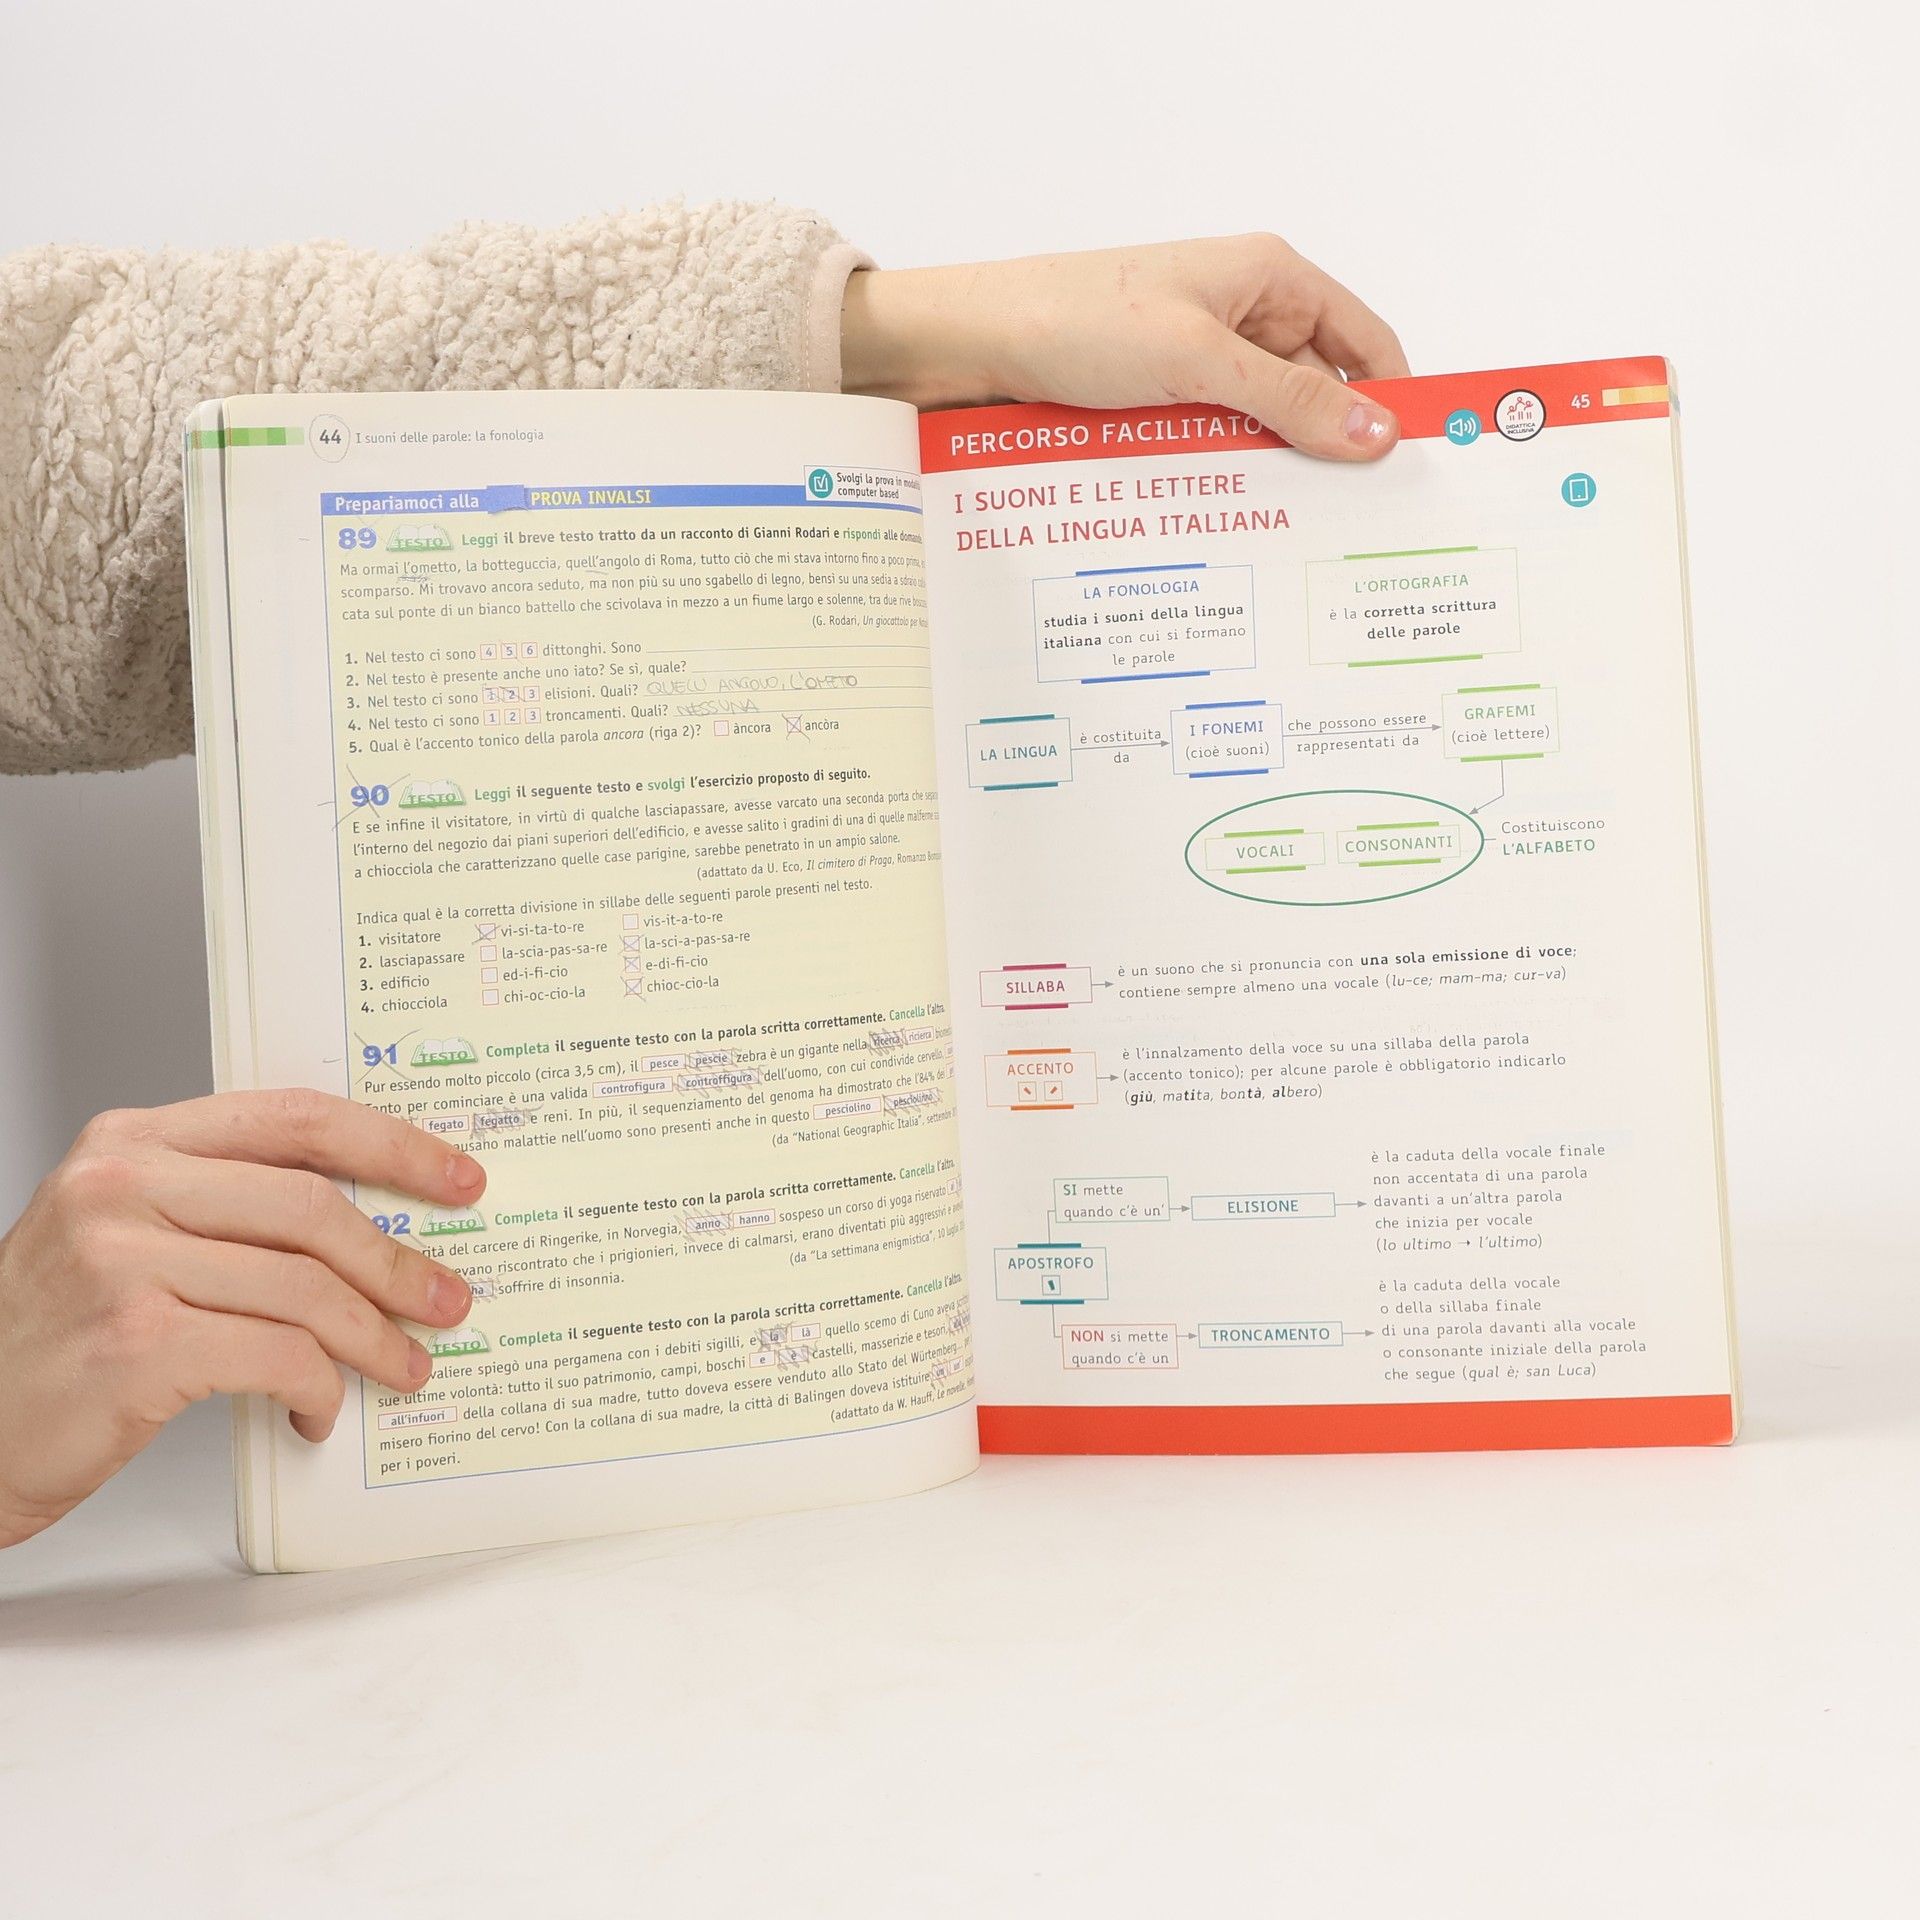 44 I suoni delle parole: la fonologia
Prepariamoci alla PROVA INVALSI
Svolgi la prova in
computer based
89 TESTO Leggi il breve testo tratto da un racconto di Gianni Rodari e rispondi alle
Ma ormai l'ometto, la botteguccia, quell'angolo di Roma, tutto ciò che mi stava intorno fino a poco
scomparso. Mi trovavo ancora seduto, ma non più su uno sgabello di legno, bensì su una sedia a sdraio
cata sul ponte di un bianco battello che scivolava in mezzo a un fiume largo e solenne, tra due rive
(G. Rodari, Un giocattolo per
1. Nel testo ci sono 4 5 6 dittonghi. Sono
2. Nel testo è presente anche uno iato? Se sì, quale?
3. Nel testo ci sono 1 2 3 elisioni. Quali? L'OMETO
4. Nel testo ci sono 1 2 3 troncamenti. Quali? NESSUNA
5. Qual è l'accento tonico della parola ancora (riga 2)? àncora ancòra
90 TESTO Leggi il seguente testo e svolgi l'esercizio proposto di seguito.
E se infine il visitatore, in virtù di qualche lasciapassare, avesse varcato una seconda porta che
l'interno del negozio dai piani superiori dell'edificio, e avesse salito i gradini di una di quelle malferme
a chiocciola che caratterizzano quelle case parigine, sarebbe penetrato in un ampio salone.
(adattato da U. Eco, Il cimitero di Praga, Romanzo
Indica qual è la corretta divisione in sillabe delle seguenti parole presenti nel testo.
1. visitatore vi-si-ta-to-re vis-it-a-to-re
2. lasciapassare la-scia-pas-sa-re la-sci-a-pas-sa-re
3. edificio ed-i-fi-cio e-di-fi-cio
4. chiocciola chi-oc-cio-la chioc-cio-la
91 TESTO Completa il seguente testo con la parola scritta correttamente. Cancella l'altra.
Pur essendo molto piccolo (circa 3,5 cm), il pesce pescie zebra è un gigante nella ricerca ricierca
Tanto per cominciare è una valida controfigura controffigura dell'uomo, con cui condivide cervello,
fegato fegatto e reni. In più, il sequenziamento del genoma ha dimostrato che l'84% dei
ausano malattie nell'uomo sono presenti anche in questo pesciolino
(da "National Geographic Italia", settembre
92 TESTO Completa il seguente testo con la parola scritta correttamente. Cancella l'altra.
rità del carcere di Ringerike, in Norvegia, anno hanno sospeso un corso di yoga riservato
evano riscontrato che i prigionieri, invece di calmarsi, erano diventati più aggressivi e
ha soffrire di insonnia. (da "La settimana enigmistica", 10 luglio
TESTO Completa il seguente testo con la parola scritta correttamente. Cancella l'altra.
valiere spiegò una pergamena con i debiti sigilli, e la là quello scemo di Cuno aveva
sue ultime volontà: tutto il suo patrimonio, campi, boschi e è castelli, masserizie e tesori,
all'infuori della collana di sua madre, tutto doveva essere venduto allo Stato del Würtemberg...
misero fiorino del cervo! Con la collana di sua madre, la città di Balingen doveva istituire
per i poveri. (adattato da W. Hauff, Le novelle,
PERCORSO FACILITATO
DIDATTICA
INCLUSIVA
45
I SUONI E LE LETTERE
DELLA LINGUA ITALIANA
LA FONOLOGIA
studia i suoni della lingua
italiana con cui si formano
le parole
L'ORTOGRAFIA
è la corretta scrittura
delle parole
LA LINGUA
è costituita
da
I FONEMI
(cioè suoni)
che possono essere
rappresentati da
GRAFEMI
(cioè lettere)
VOCALI
CONSONANTI
Costituiscono
L'ALFABETO
SILLABA
è un suono che si pronuncia con una sola emissione di voce;
contiene sempre almeno una vocale (lu-ce; mam-ma; cur-va)
ACCENTO
è l'innalzamento della voce su una sillaba della parola
(accento tonico); per alcune parole è obbligatorio indicarlo
(giù, matita, bontà, albero)
APOSTROFO
SI mette
quando c'è un'
ELISIONE
è la caduta della vocale finale
non accentata di una parola
davanti a un'altra parola
che inizia per vocale
(lo ultimo → l'ultimo)
NON si mette
quando c'è un
TRONCAMENTO
è la caduta della vocale
o della sillaba finale
di una parola davanti alla vocale
o consonante iniziale della parola
che segue (qual è; san Luca)